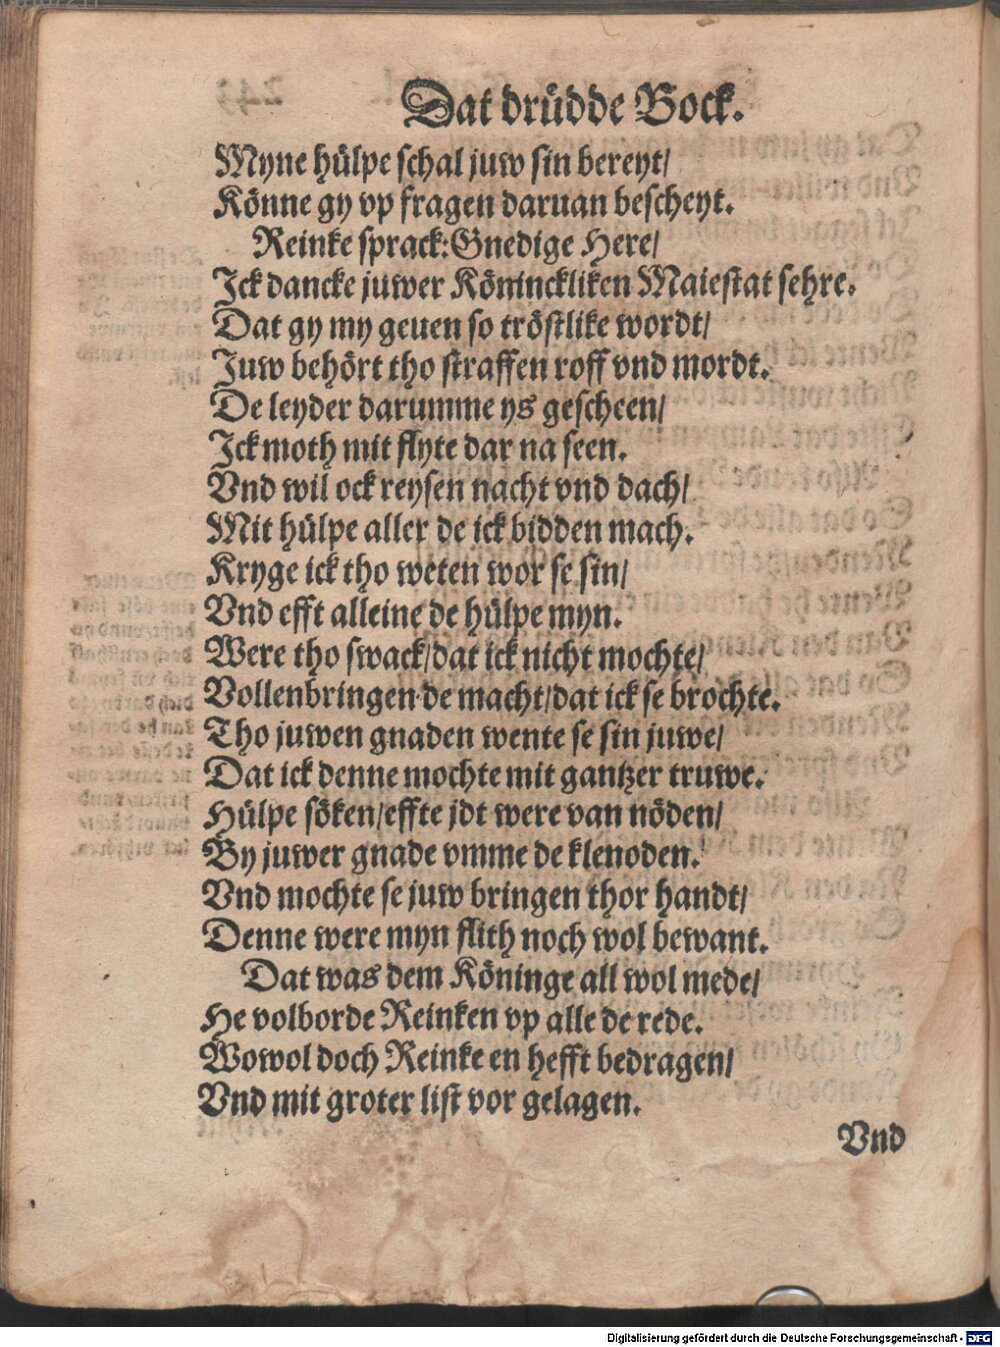 Dat drüdde Bock.
Myne hülpe schal juw sin bereyt/
Könne gy vp fragen daruan bescheyt.
Reinke sprack: Gnedige Here/
Ick dancke juwer Könincklik​en Maiestat sehre.
Dat gy my geuen so tröstlike wordt/
Juw behört tho straffen roff vnd mordt.
De leyder darumme ys gescheen/
Ick moth mit flyte dar na seen.
Vnd wil ock reysen nacht vnd dach/
Mit hülpe aller de ick bidden mach.
Kryge ick tho weten wor se sin/
Vnd efft alleine de hülpe myn.
Were tho swack/dat ick nicht mochte/
Vollenbringen de macht/dat ick se brochte.
Tho juwen gnaden wente se sin juwe/
Dat ick denne mochte mit gantzer truwe.
Hülpe söken/effte jdt were van nöden/
By juwer gnade vmme de klenoden.
Vnd mochte se juw bringen thor handt/
Denne were myn flith noch wol bewant.
Dat was dem Köninge all wol mede/
He volborde Reinken vp alle de rede.
Wowol doch Reinke en hefft bedragen/
Vnd mit groter list vor gelagen.
Vnd
Digitalisierung gefördert durch die Deutsche Forschungsgemeinschaft - DFG